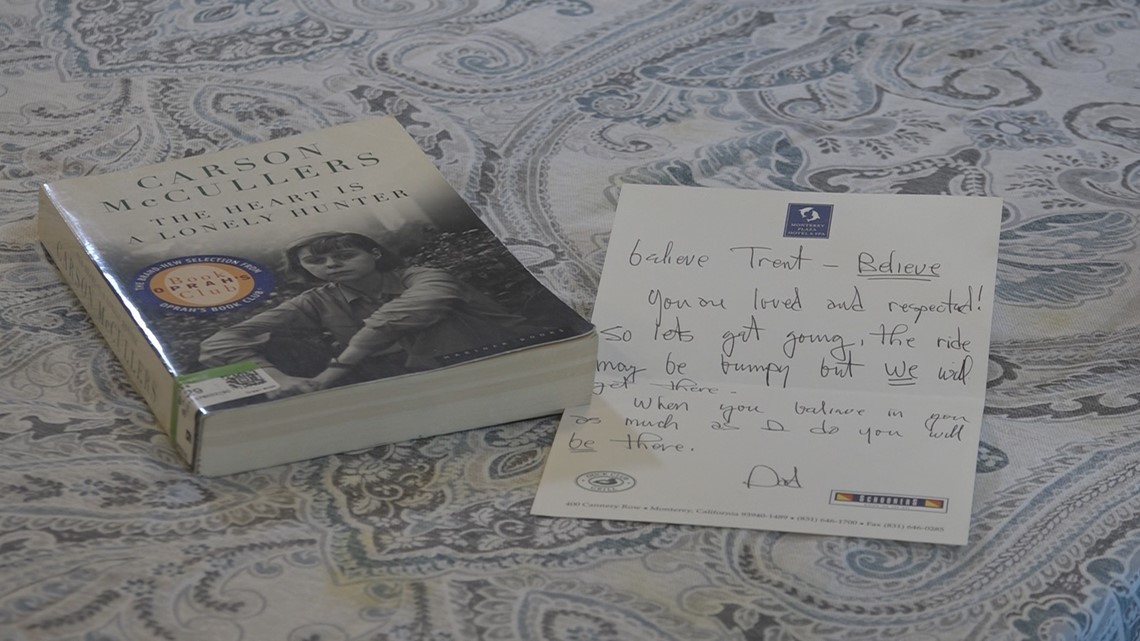 CARSON
McCULLERS
THE HEART IS
A LONELY HUNTER
THE BRAND-NEW SELECTION FROM
OPRAH'S
Book Club
OPRAH'S BOOK CLUB
CARSON McCULLERS
MONTEREY
PLAZA
HOTEL & SPA
believe Trent – Believe
you are loved and respected!
So lets get going, the ride
may be bumpy but we will
get there.
When you believe in you
as much as I do you will
be there.
Dad
GRILL
SCHOONERS
400 Cannery Row • Monterey, California 93940-1489 • (831) 646-1700 • Fax (831) 646-0285